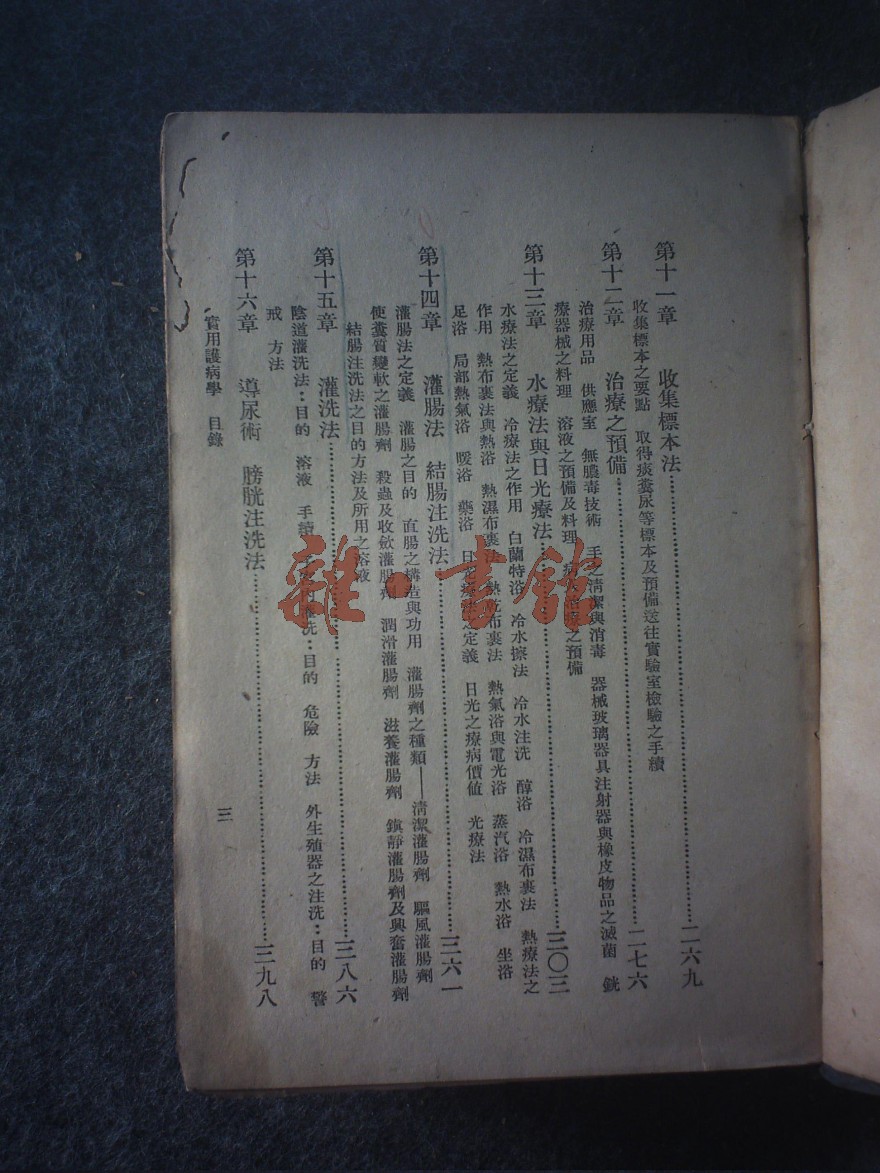 第十一章　收集標本法……二六九
收集標本之要點　取得痰糞尿等標本及預備送往實驗室檢驗之手續
第十二章　治療之預備……二七六
治療用品　供應室　無膿毒技術　手之清潔與消毒　器械玻璃器具注射器與橡皮物品之滅菌　銳
療器械之料理　溶液之預備及料理　病人治療之預備
第十三章　水療法與日光療法……三〇三
水療法之定義　冷療法之作用　白蘭特浴　冷水擦法　冷水注洗　醇浴　冷濕布裹法　熱療法之
作用　熱布裹法與熱浴　熱濕布裹法　熱乾布裹法　熱氣浴與電光浴　蒸汽浴　熱水浴　坐浴
足浴　局部熱氣浴　暖浴　藥浴　日光療法之定義　日光之療病價値　光療法
第十四章　灌腸法　結腸注洗法……三六一
灌腸法之定義　灌腸之目的　直腸之構造與功用　灌腸劑之種類——清潔灌腸劑　驅風灌腸劑
使糞質變軟之灌腸劑　殺蟲及收斂灌腸劑　潤滑灌腸劑　滋養灌腸劑　鎭靜灌腸劑及興奮灌腸劑
結腸注洗法之目的方法及所用之溶液
第十五章　灌洗法……三八六
陰道灌洗法：目的　溶液　手續　灌洗：目的　危險　方法　外生殖器之注洗：目的　警
戒　方法
第十六章　導尿術　膀胱注洗法……三九八
實用護病學　目錄
三
雜·書館